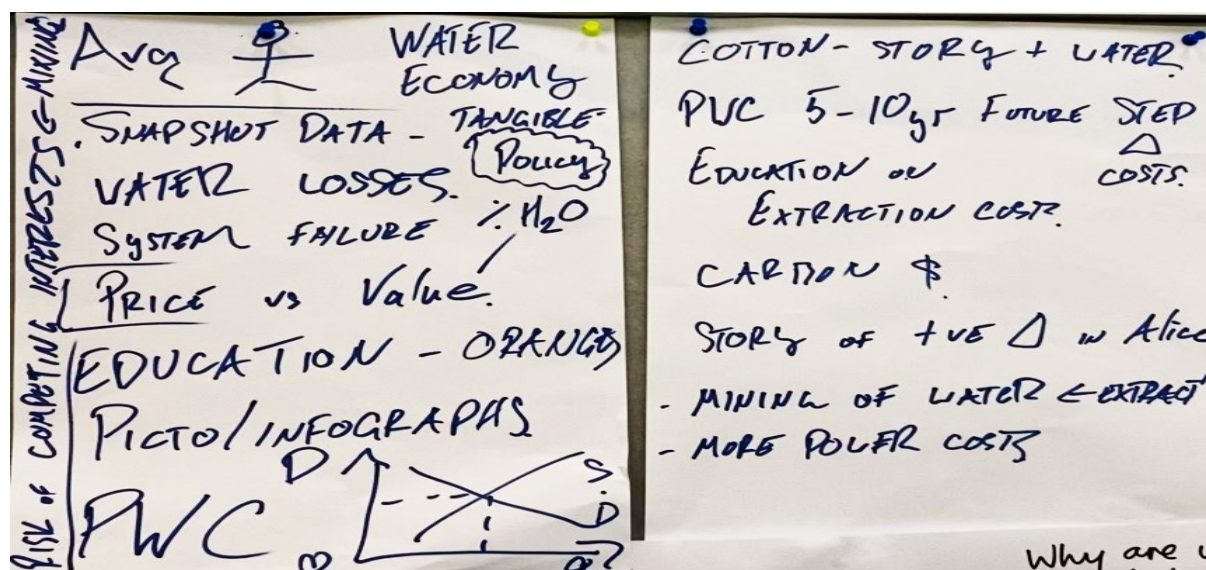 RISK OF COMPETING INTERESTS E-MINING
Avg WATER
ECONOMY
. SNAPSHOT DATA - TANGIBLE
Policy
WATER LOSSES.
SYSTEM FAILURE % H2O
PRICE vs Value.
EDUCATION - ORANGES
PICTO/INFOGRAPHS
PWC
D
S.
D
COTTON - STORY + WATER
PWC 5-10yr FUTURE STEP
Δ
EDUCATION ON COSTS.
EXTRACTION COST.
CARBON $
STORY OF +VE Δ IN Alice
- MINING OF WATER ← EXTRACT
- MORE POWER COSTS
Why are